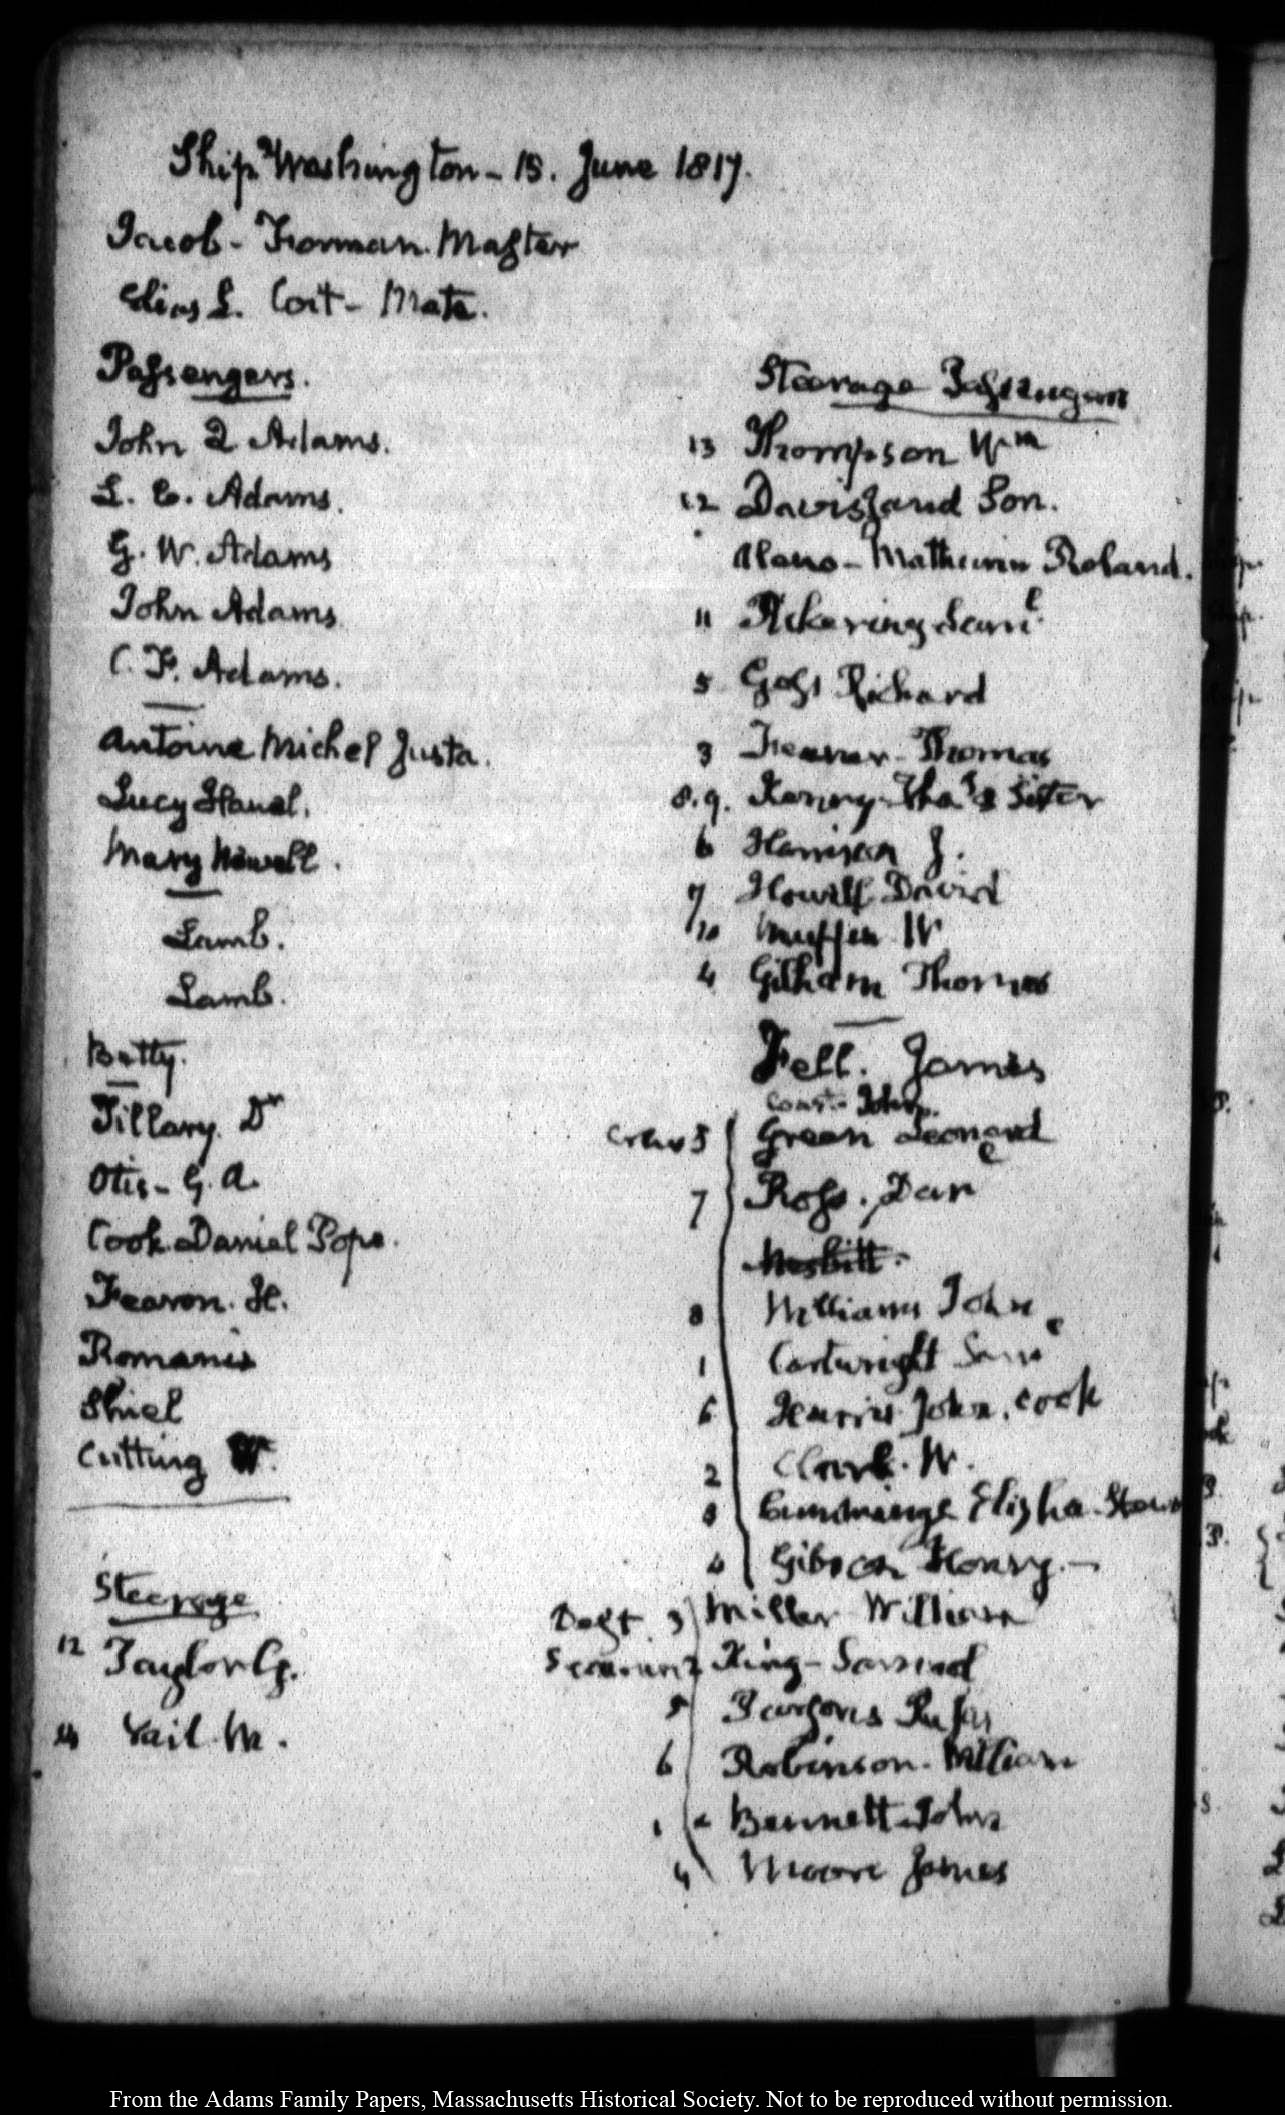 Ship Washington - 15. June 1817.
Jacob - Forman. Master
Elias L. Coit - Mate.
Passengers.
John Q Adams.
L. C. Adams.
G. W. Adams
John Adams
C. F. Adams.
Antoine Michel Giusta.
Lucy
Mary Newell.
Lamb.
Lamb.
Betty.
Tillary. Dr
Otis - G. A.
Cook. Daniel Pope.
Fearon. H.
Romanis
Shiel
Cutting W.
Steerage
12 Taylor G.
14 Vail. M.
Steerage Passengers
13 Thompson Wm
12 Davis, and Son.
Roland.
11 Pickering Saml.
5 Goss Richard
3 Thomas
8.9. Thas & Sister
6 Harrison J.
7 Howill David
10 W
4 Gilham Thomas
Fell. James
John.
Crew 5 Green Leonard
7 Ross. Danl
Nesbitt.
8 Williams John
1 Cartwright Saml
6 Harris John. cook
2 Clark. W.
3 Cummings Elisha
4 Gibson Henry. -
3 Miller William
2 King - Samuel
5 Parsons Rufus
6 Robinson. William
1 Bennett - John
4 Moore James
From the Adams Family Papers, Massachusetts Historical Society. Not to be reproduced without permission.